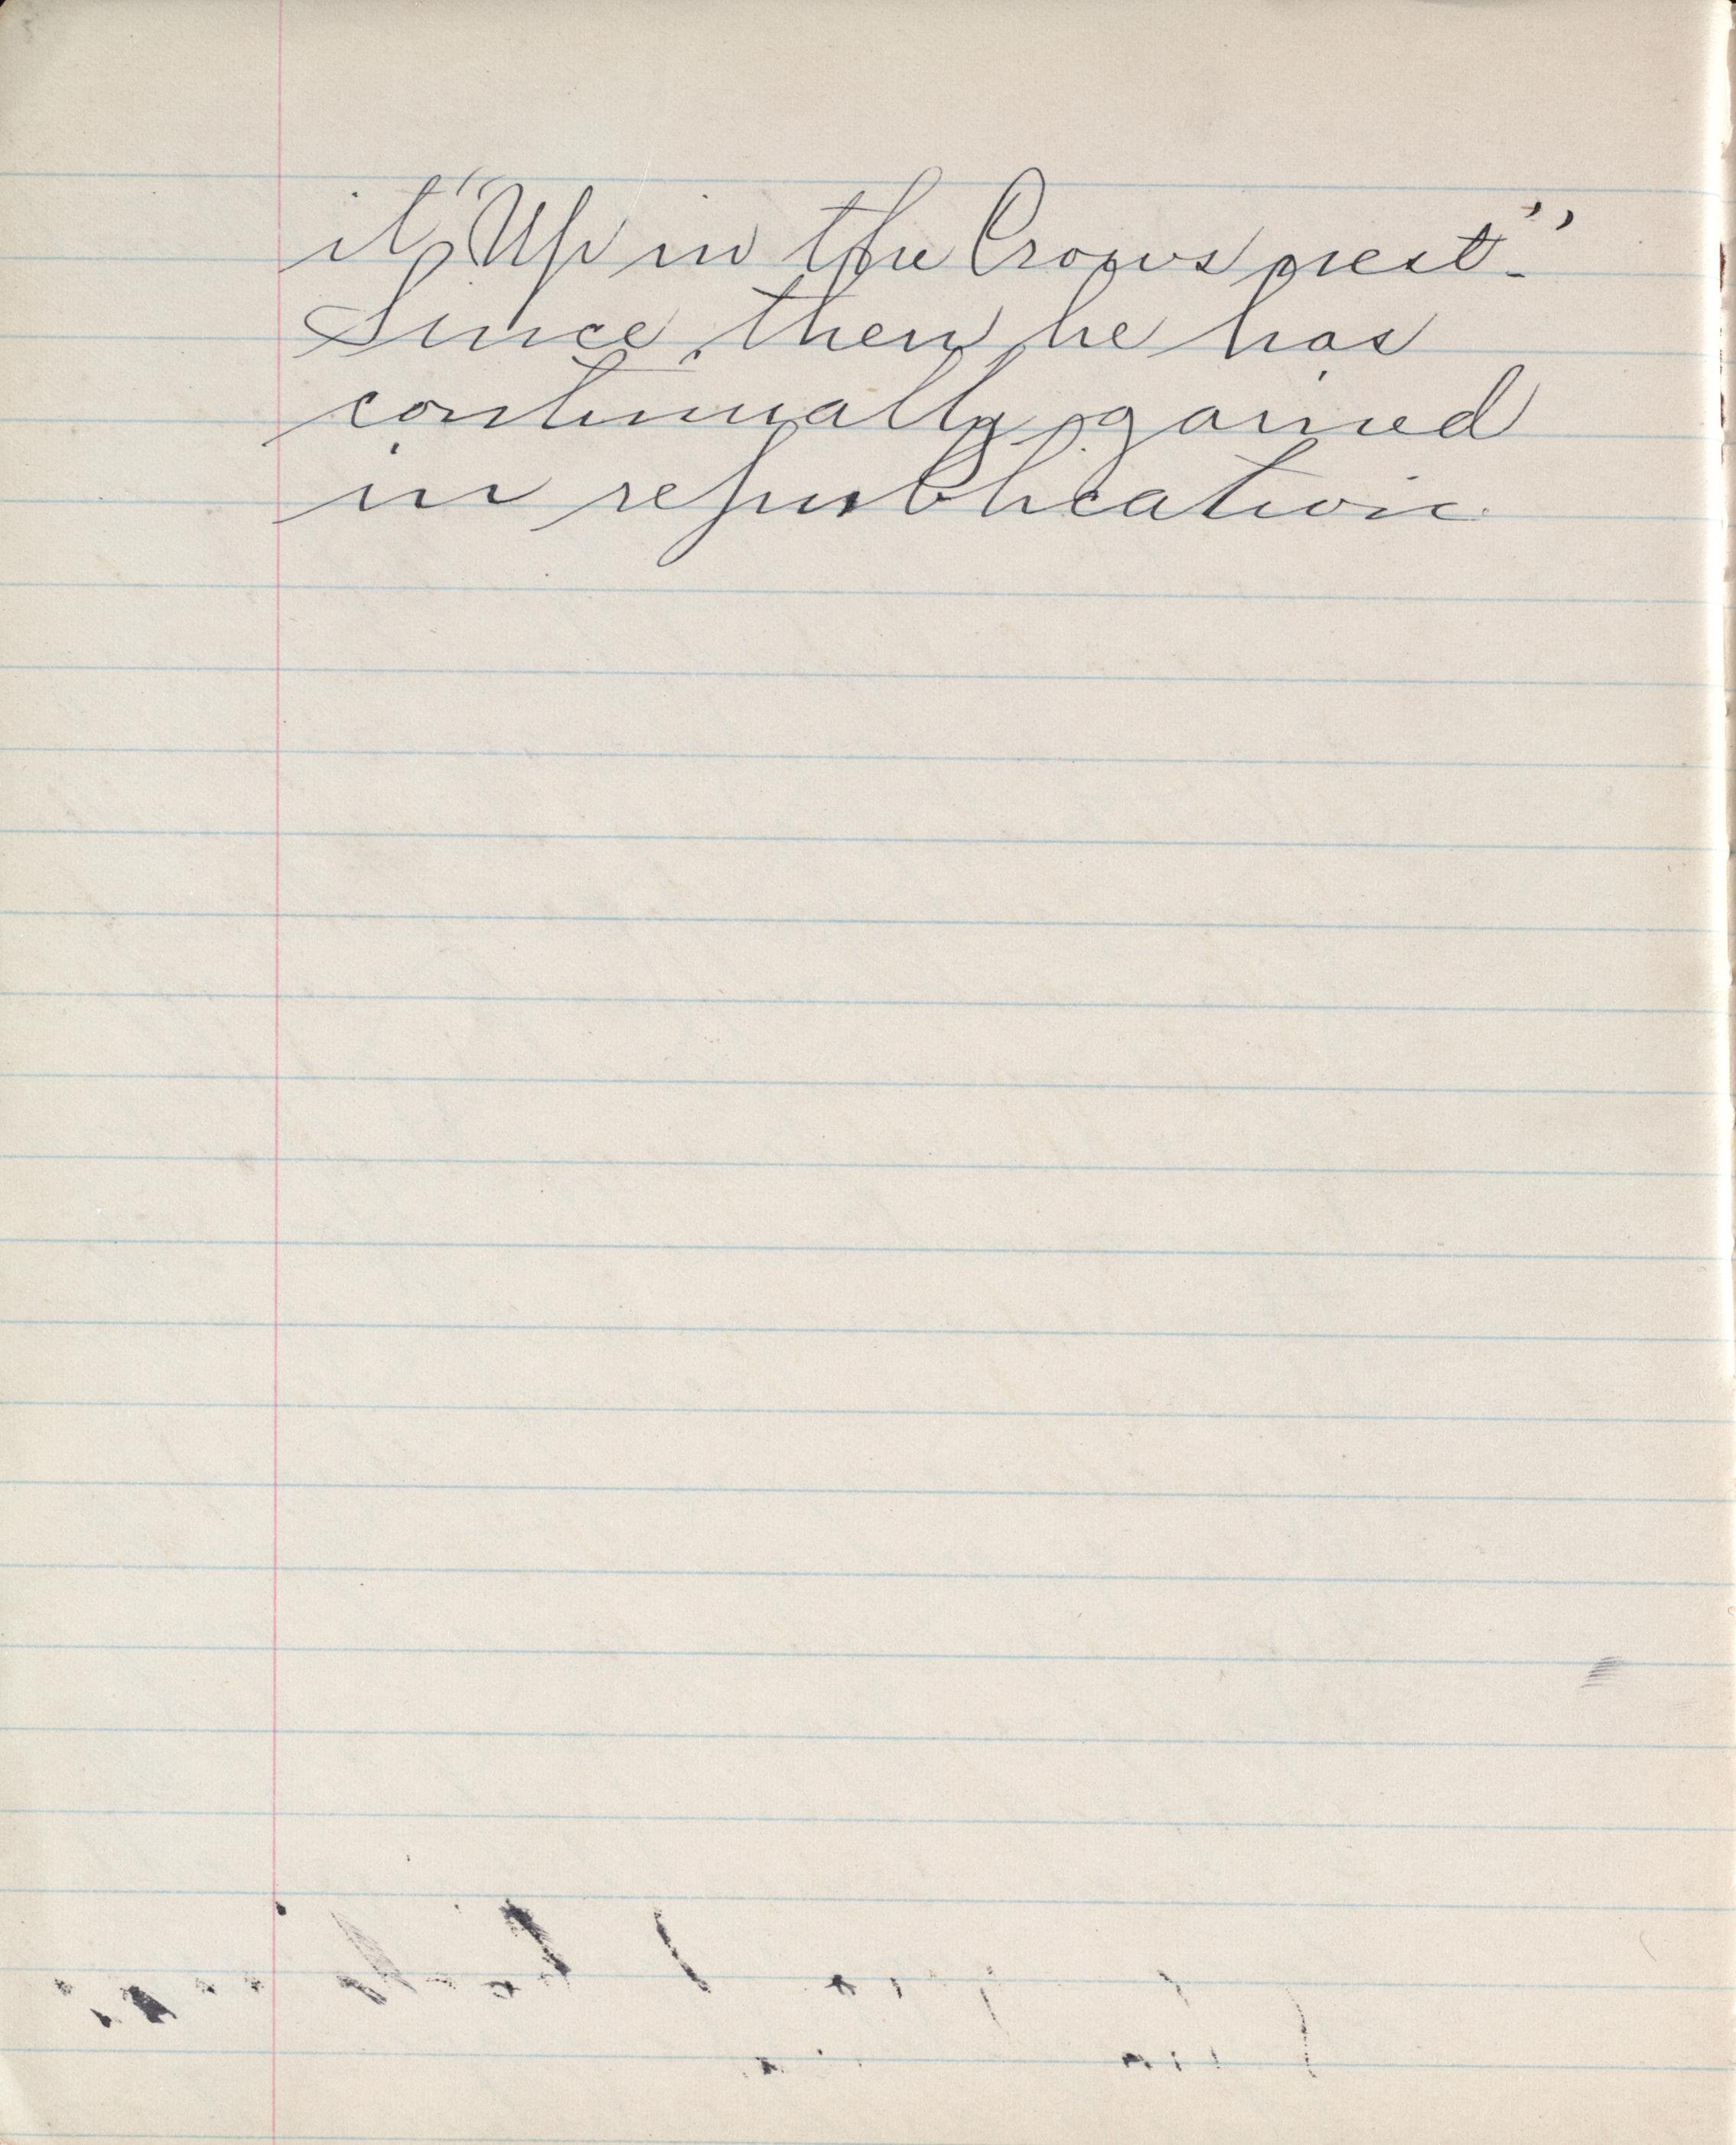 it, "Up in the Crows nest".
Since then he has
continually gained
in republication